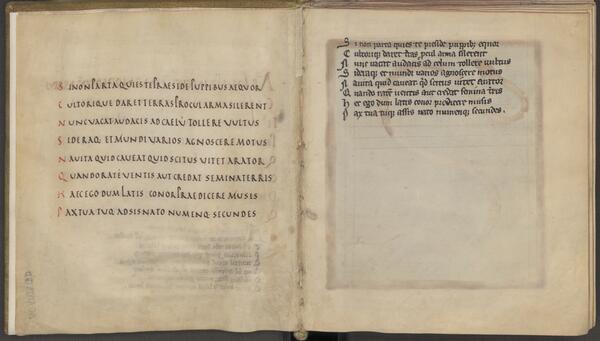 SI NON PARTA QUIES TE PRAESIDE PUPPIBUS AEQUOR
CULTORIQUE DARET TERRAS PROCUL ARMA SILERENT
NUNC VACAT AUDACIS AD CAELŪ TOLLERE VULTUS
SIDERAQ; ET MUNDI VARIOS AGNOSCERE MOTUS
NAVITA QUID CAVEAT QUID SCITUS VITET ARATOR
QUANDO RATE VENTIS AUT CREDAT SEMINA TERRIS
HAEC EGO DUM LATIS CONOR PRAEDICERE MUSIS
PAX TUA TUQ; ADSIS NATO NUMENQ; SECUNDES
Si non parta quies te preside puppibȝ equor
Cultoriqȝ daret tras, pcul arma silerent
Nunc vacat audacis ad celum tollere vultus
Sideraqȝ et mundi varios agnoscere motus
Navita quid caveat qd scitus vitet arator
Quando ratē ventis aut credat semina tris
Hec ego dum latis conor predicere musis
Pax tua tuqȝ assis nato numenqȝ secundes.